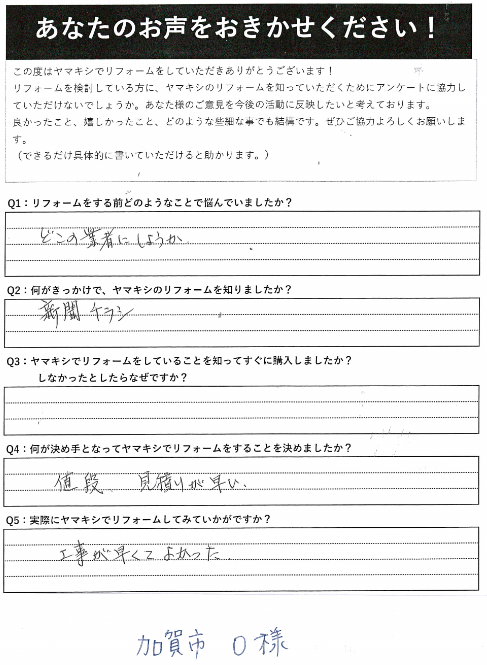 あなたのお声をおきかせください！
この度はヤマキシでリフォームをしていただきありがとうございます！
リフォームを検討している方に、ヤマキシのリフォームを知っていただくためにアンケートに協力し
ていただけないでしょうか。あなた様のご意見を今後の活動に反映したいと考えております。
良かったこと、嬉しかったこと、どのような些細な事でも結構です。ぜひご協力よろしくお願いしま
す。
（できるだけ具体的に書いていただけると助かります。）
Q1：リフォームをする前どのようなことで悩んでいましたか？
どこの業者にしようか
Q2：何がきっかけで、ヤマキシのリフォームを知りましたか？
新聞チラシ
Q3：ヤマキシでリフォームをしていることを知ってすぐに購入しましたか？
しなかったとしたらなぜですか？
Q4：何が決め手となってヤマキシでリフォームをすることを決めましたか？
値段、見積りが早い、
Q5：実際にヤマキシでリフォームしてみていかがですか？
工事が早くてよかった。
加賀市 O様